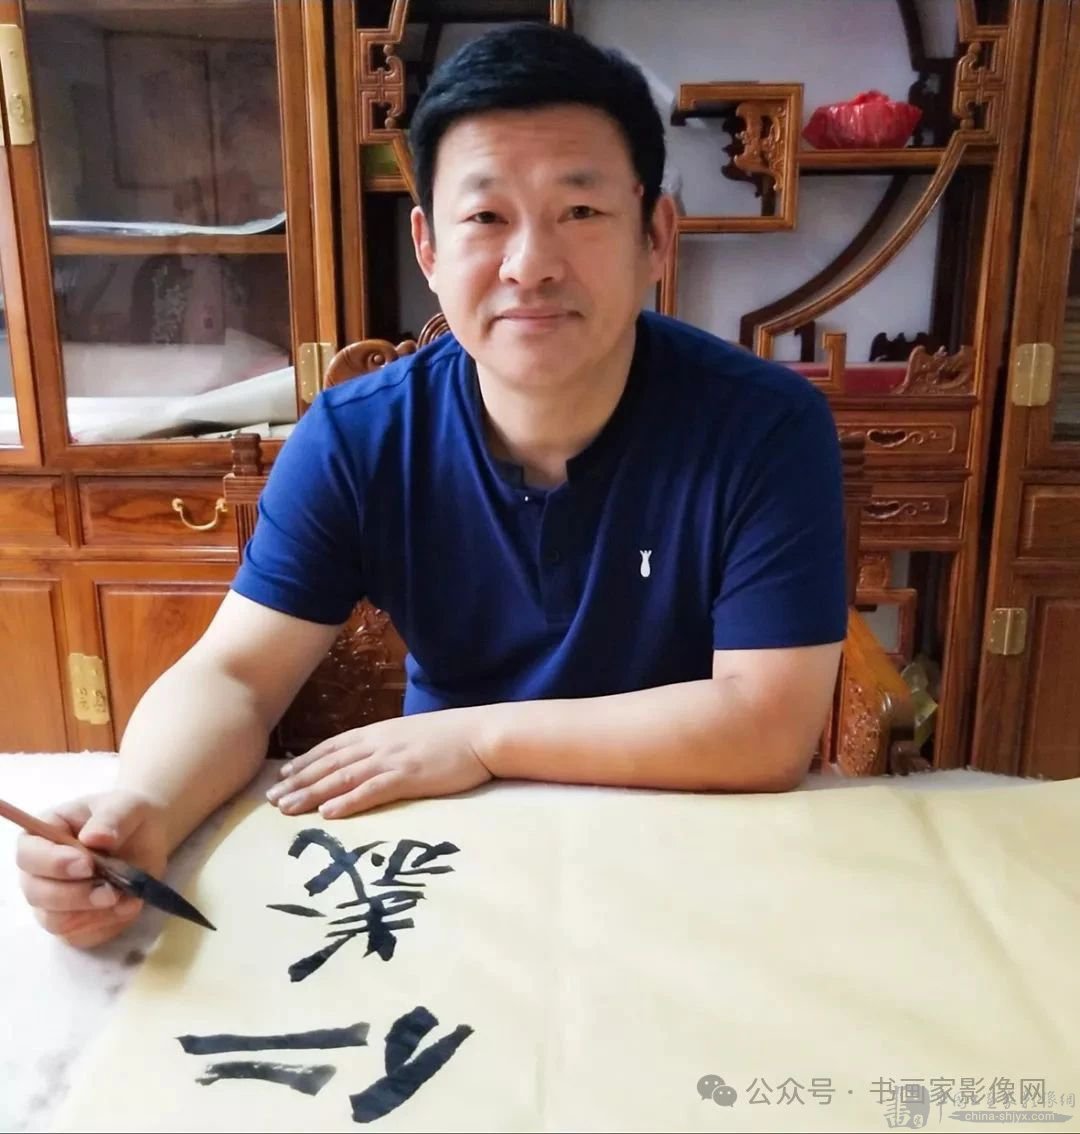 仁義
公众号 · 书画家影像网
china-shjyx.com